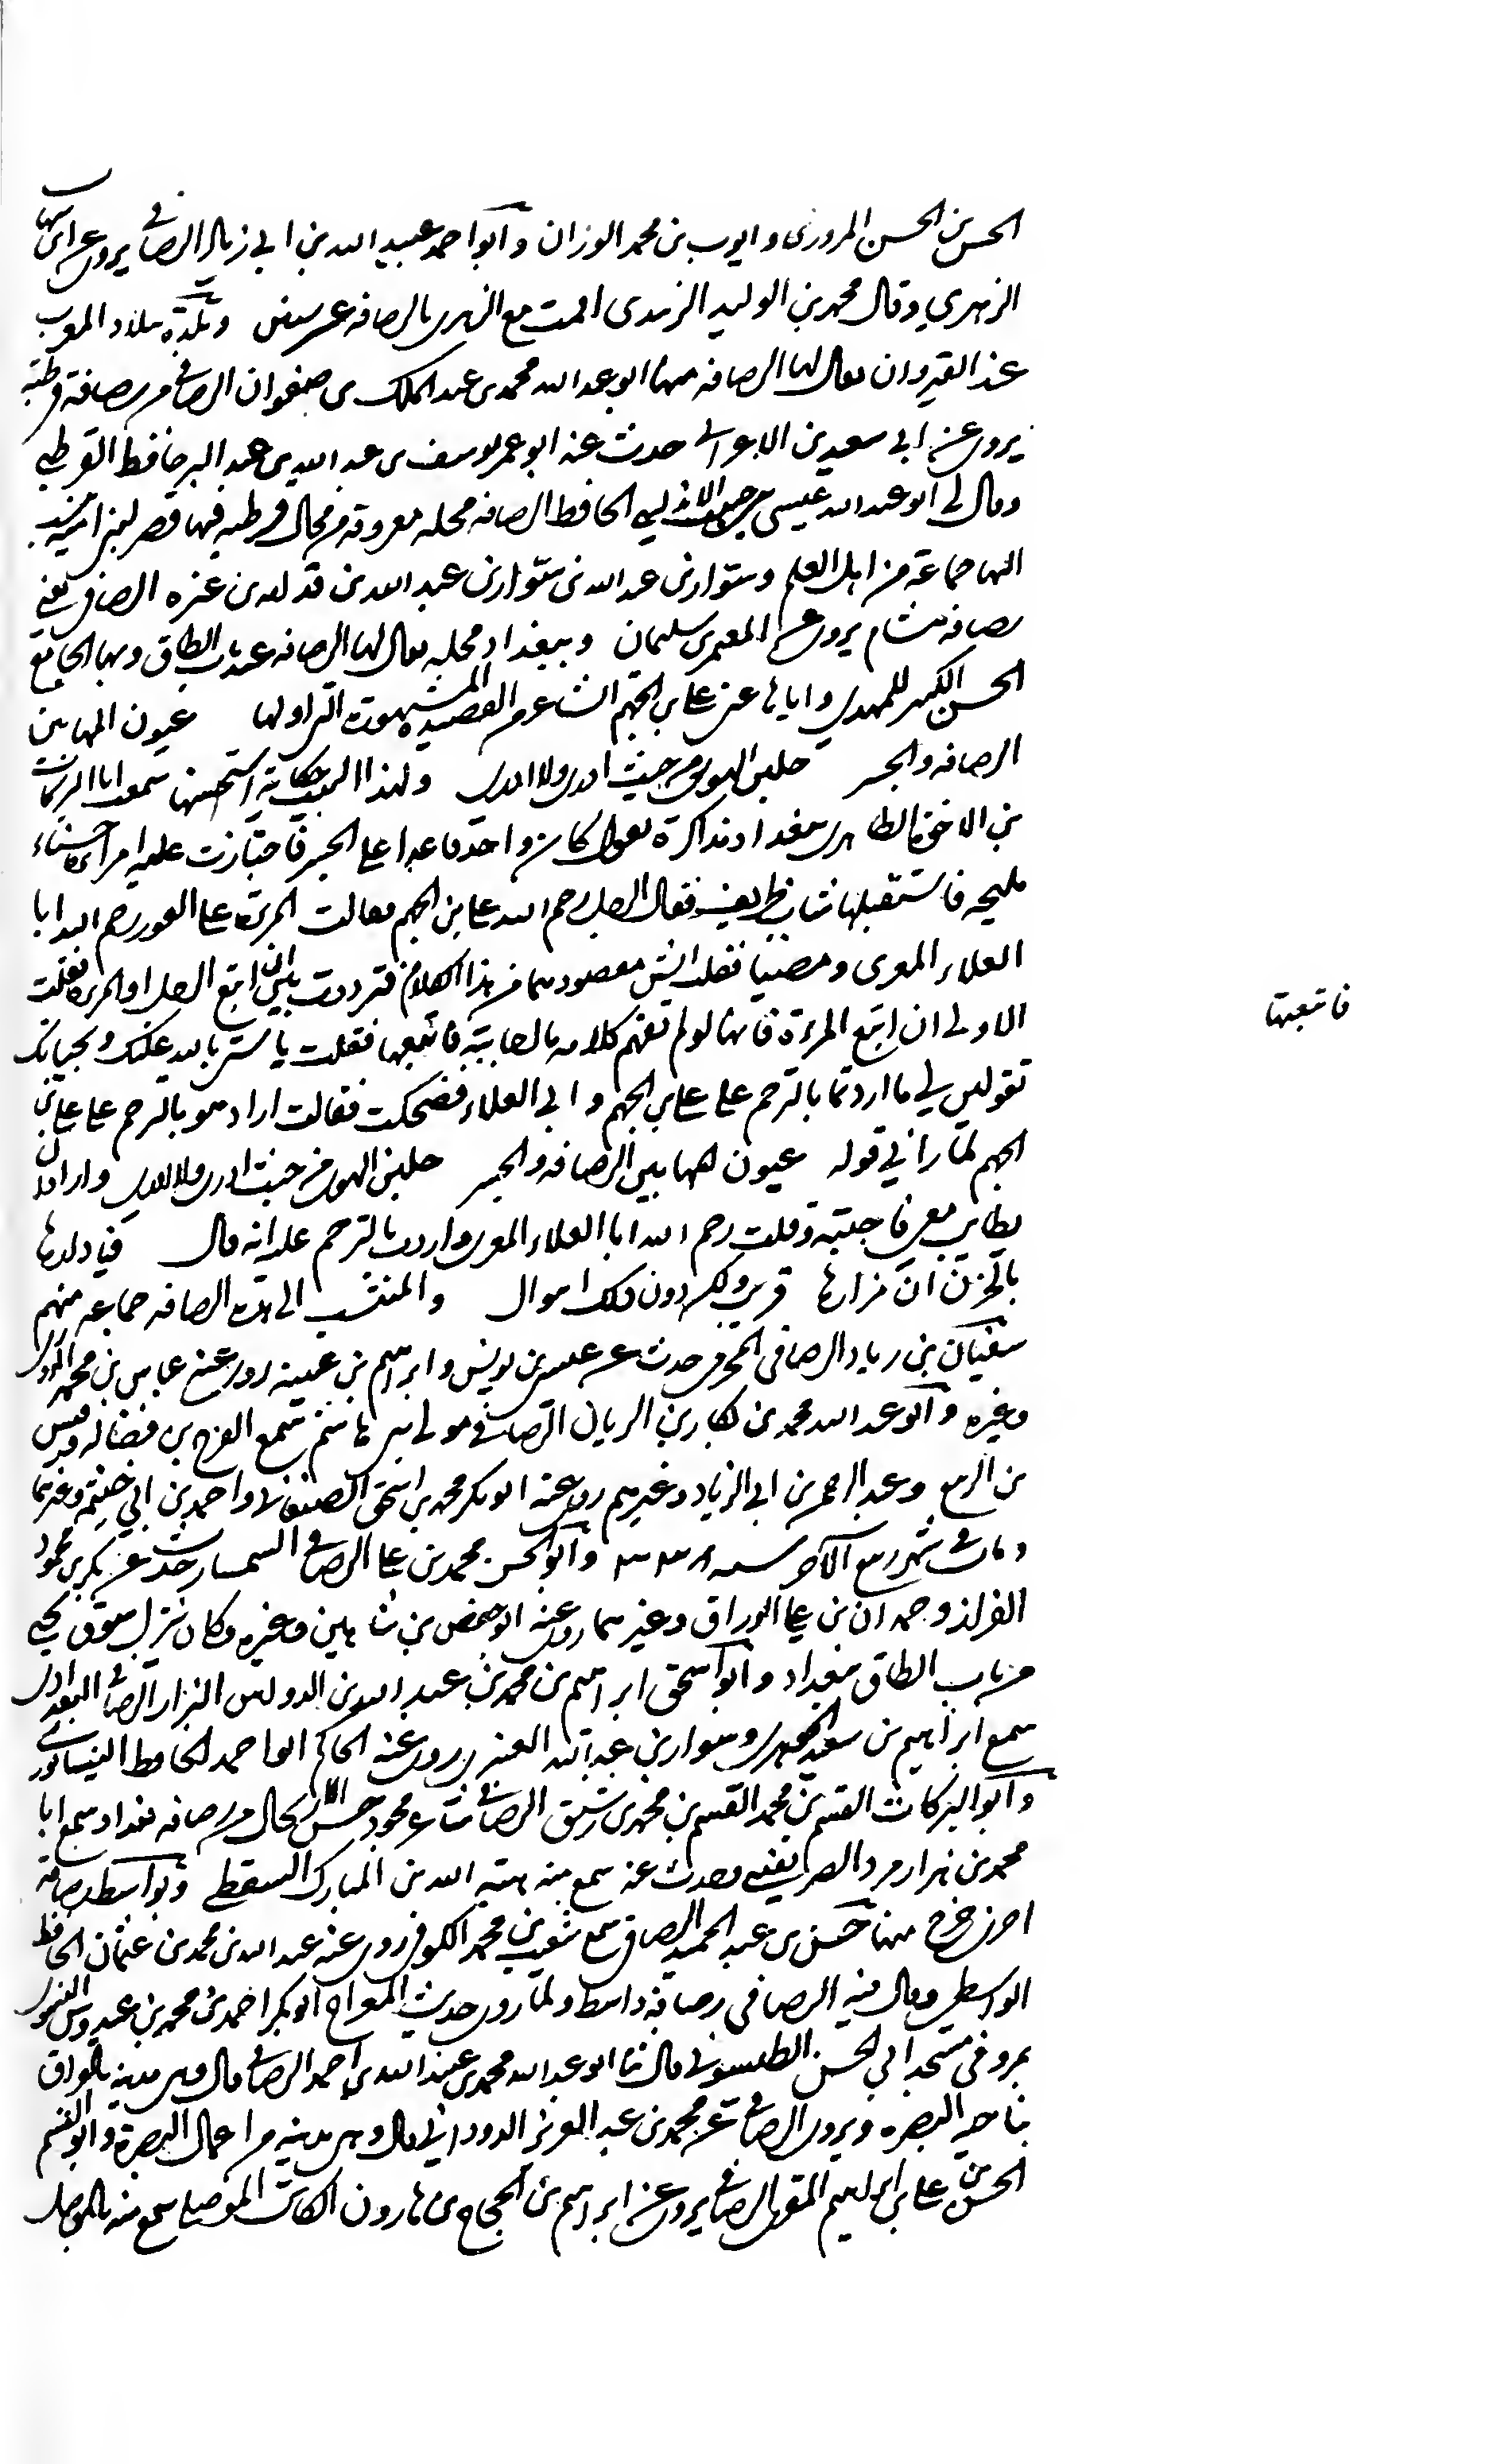 الحسن بن الحسن المروزى وايوب بن محمد الوزان وابو احمد عبيد الله بن ابي زياد الرصافي يروى عن ابن شهاب
الزهري وقال محمد بن الوليد الزبيدى اقمت مع الزهرى بالرصافه عشر سنين وبلدة ببلاد المغرب
عند القيروان يقال لها الرصافه منها ابو عبد الله محمد بن عبد الملك بن صيفوان الرصافي من رصافة قرطبة
يروى عن ابي سعيد بن الاعرابي حدث عنه ابو عمر يوسف بن عبد الله بن عبد البر حافظ القرطبي
وقال لى ابو عبد الله عيسى بن الاندلسي الحافظ الرصافه محله معروفة من محال قرطبه فيها قصر لبنى اميه ينسب
اليها جماعة من اهل العلم وسوار بن عبد الله بن سوار بن عبد الله بن قدامه بن عنزه الرصافي يعنى
رصافه هشام يروى عن المعتمر بن سليمان وببغداد محله يقال لها الرصافه عند باب الطاق وبها الجامع
الحسن الكبير للمهدي واياها عنى على بن الجهم الشاعر القصيده المشهوره التى اولها عيون المها بين
الرصافه والجسر جلبن الهوى من حيث ادرى ولا ادرى ولهذا البيت حكاية استحسنها سمعت ابا البركات
بن الاخوة الطاهرى ببغداد مذاكرة يقول كان واحد قاعدا على الجسر فاجتازت عليه امراة حسناء
مليحه فاستقبلها شاب ظريف فقال الرجل رحم الله على بن الجهم فقالت المرءة على الفور رحم الله ابا
العلاء المعرى ومضيا فقلت ايش مقصودهما من هذا الكلام فترددت بين ان اتبع الرجل او المرءة فقلت
الاولى ان اتبع المرءة فانها لو لم تفهم كلامه ما اجابته فاتبعها فقلت يا ستى بالله عليك وبحياتك
تقولين لي ما اردتما بالترحم على على بن الجهم وابي العلاء فضحكت فقالت اراد هو بالترحم على على بن
الجهم لما راني قوله عيون المها بين الرصافه والجسر جلبن الهوى من حيث ادرى ولا ادرى واراد ان
يطايب معى فاجبته وقلت رحم الله ابا العلاء المعرى واردت بالترحم عليه انه قال فيا دارها
بالحزن ان مزارها قريب ولكن دون ذلك اهوال والمنتسب الى هذه الرصافه جماعه منهم
سفيان بن زياد الرصافي المخرمي حدث عن عيسى بن يونس وابراهيم بن عيينه روى عنه عباس بن محمد الدورى
وغيره وابو عبد الله محمد بن بكار بن الريان الرصافي مولى بنى هاشم سمع الفرج بن فضاله وقيس
بن الربيع وعبد الرحمن بن ابي الزناد وغيرهم روى عنه ابو بكر محمد بن اسحق الصنعاني واحمد بن ابي خيثمه وغيرهما
ومات في شهر ربيع الآخر سنه ٢٣٨ وابو الحسن محمد بن على الرصافي السمسار حدث عن بكر بن محمود
القزاز وحمدان بن على الوراق وغيرهما روى عنه ابو حفص بن شاهين وغيره وكان ينزل سوق يحيى
من باب الطاق ببغداد وابو اسحق ابراهيم بن محمد بن عبد الله بن البزاز الرصافي البغدادى
سمع ابراهيم بن سعيد الجوهرى وسوار بن عبد الله العنبرى روى عنه الحاكم ابو احمد الحافظ النيسابورى
وابو البركات القسم بن محمد القسم بن محمد بن رشيق الرصافي شاعر مجود حسن الحال من رصافه بغداد سمع ابا
محمد بن هزارمرد الصريفيني وحدث عنه سمع منه هبة الله بن المبارك السقطى وبواسط رصافة
اخرى خرج منها حسن بن عبد الحميد الرصافي سمع شعيب بن محمد الكوفي روى عنه عبد الله بن محمد بن عثمان الحافظ
الواسطى وقال فيه الرصافي رصافة واسط ولما روى حديث المعراج ابو بكر احمد بن محمد بن عبدوس النسوى
بمرو في مسجد ابي الحسن الطيسفوني قال ثنا ابو عبد الله محمد بن عبد الله بن احمد الرصافي قال وهى مدينه بالعراق
بناحيه البصره ويروى الرصافي عن محمد بن عبد العزيز الدوداني قال وهى مدينه من اعمال البصرة وابو القسم
الحسن بن على بن ابراهيم المقرى الرصافي يروى عن ابراهيم بن الحجاج بن هارون الكاتب الموصلى سمع منه بالموصل
فاتبعتها